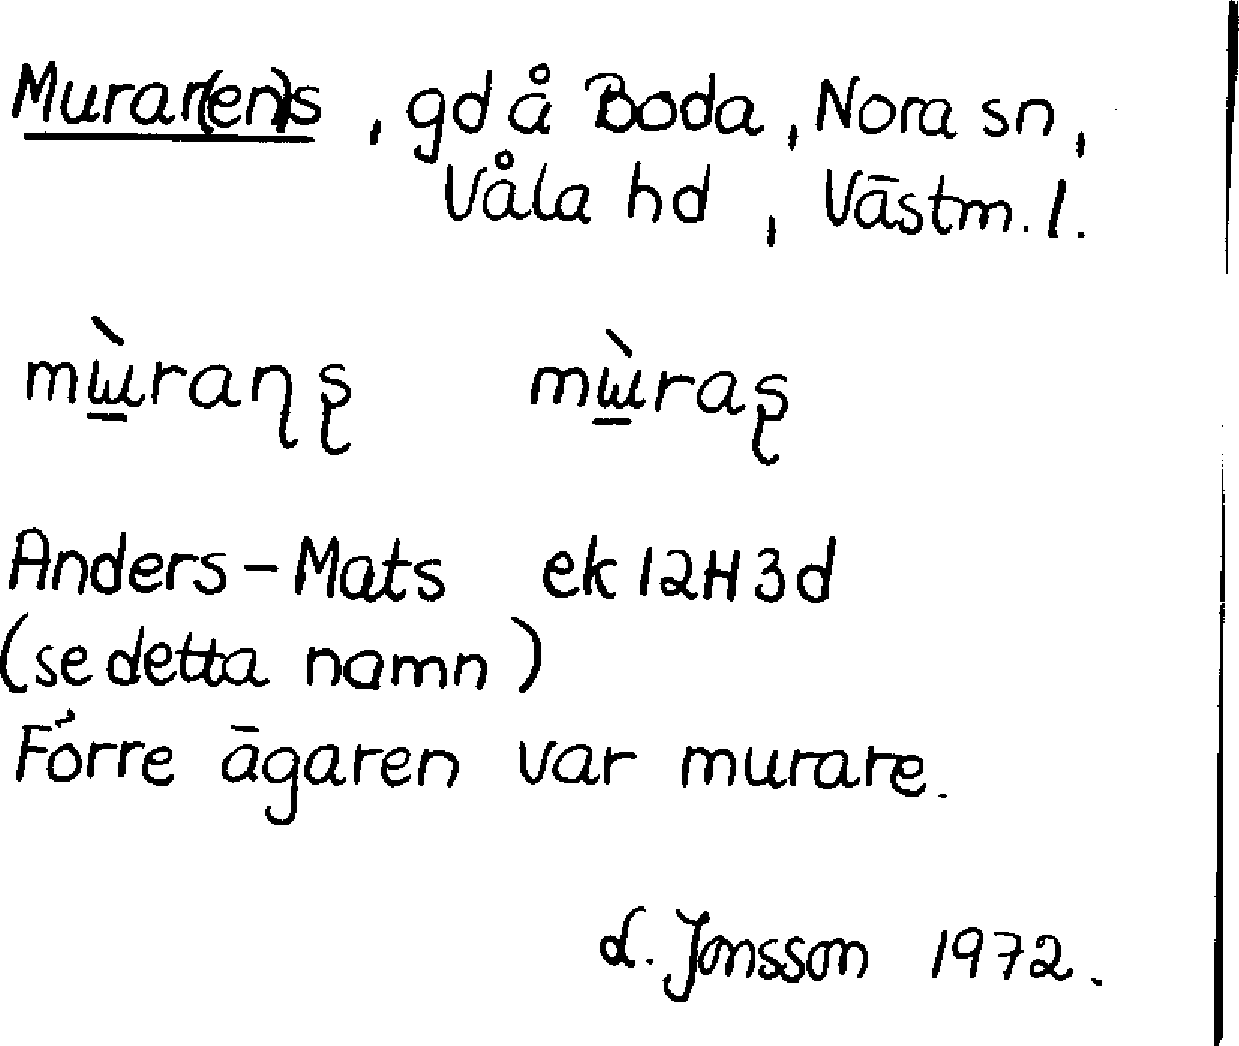 Murar(en)s, gd å Boda, Nora sn,
Våla hd, Västm. l.
mɯ̱̀raɳʂ mɯ̱̀raʂ
Anders-Mats ek 12H3d
(se detta namn)
Förre ägaren var murare.
Jonsson 1972.